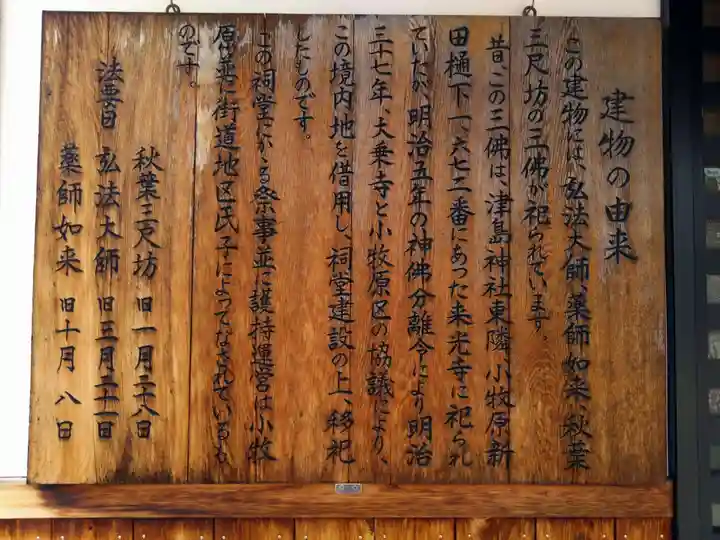 建物の由来
この建物には、弘法大師、薬師如来、秋葉
三尺坊の三佛が祀られています。
昔、この三佛は、津島神社東隣、小牧原新
田樋下一、六七二番にあった来光寺に祀られ
ていたが、明治五年の神佛分離令により、明治
三十七年、大乗寺と小牧原区の協議により、
この境内地を借用し、祠堂建設の上、移祀
したものです。
この祠堂にかゝる祭事並に護持運営は小牧
原並に街道地区氏子によってなされているも
のです。
法要日
秋葉三尺坊 旧一月二十八日
弘法大師 旧三月二十一日
薬師如来 旧十月八日